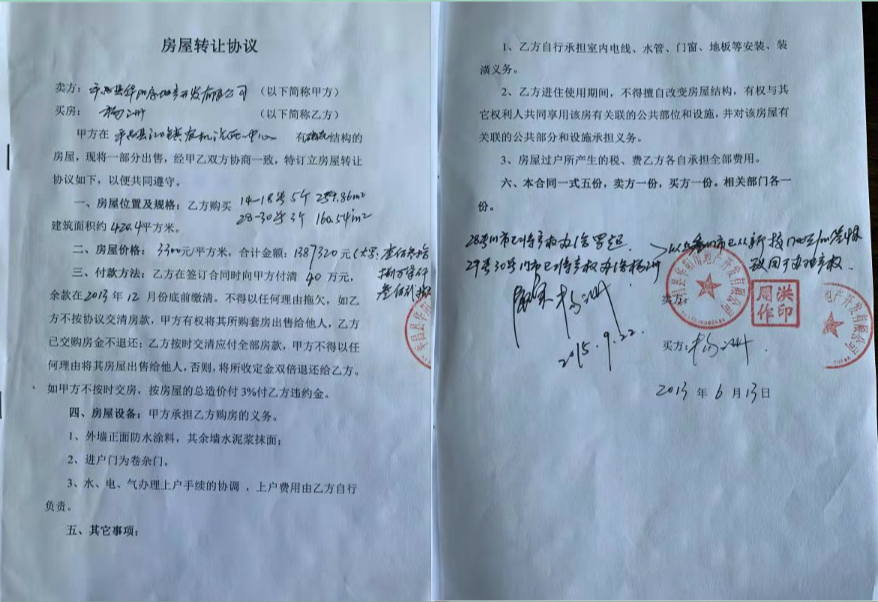 房屋转让协议
卖方：平昌县华阳房地产开发有限公司（以下简称甲方）
买房：杨 （以下简称乙方）
甲方在 平昌县江口镇农机 中心 有 结构的
房屋，现将一部分出售，经甲乙双方协商一致，特订立房屋转让
协议如下，以便共同遵守。
一、房屋位置及规格：乙方购买 14-18号5个 259.86m²
28-30号3个 160.54m²
建筑面积约420.4平方米。
二、房屋价格：3300元/平方米，合计金额：1387320元（大写：壹佰叁拾
捌万柒仟
叁佰贰拾
三、付款方法：乙方在签订合同时向甲方付清 40 万元，
余款在2013年12月份底前缴清。不得以任何理由拖欠，如乙
方不按协议交清房款，甲方有权将其所购套房出售给他人，乙方
已交购房金不退还；乙方按时交清应付全部房款，甲方不得以任
何理由将其房屋出售给他人，否则，将所收定金双倍退还给乙方。
如甲方不按时交房，按房屋的总造价付3%付乙方违约金。
四、房屋设备：甲方承担乙方购房的义务。
1、外墙正面防水涂料，其余墙水泥浆抹面；
2、进户门为卷杂门。
3、水、电、气办理上户手续的协调，上户费用由乙方自行
负责。
五、其它事项：
1、乙方自行承担室内电线、水管、门窗、地板等安装、装
潢义务。
2、乙方进住使用期间，不得擅自改变房屋结构，有权与其
它权利人共同享用该房有关联的公共部位和设施，并对该房屋有
关联的公共部分和设施承担义务。
3、房屋过户所产生的税、费乙方各自承担全部费用。
六、本合同一式五份，卖方一份，买方一份。相关部门各一
份。
28号门市已将产权办给罗
29号30号门市已将产权办给杨
2015.9.22.
卖方：
周洪
作印
买方：杨
2013 年 6 月 13 日